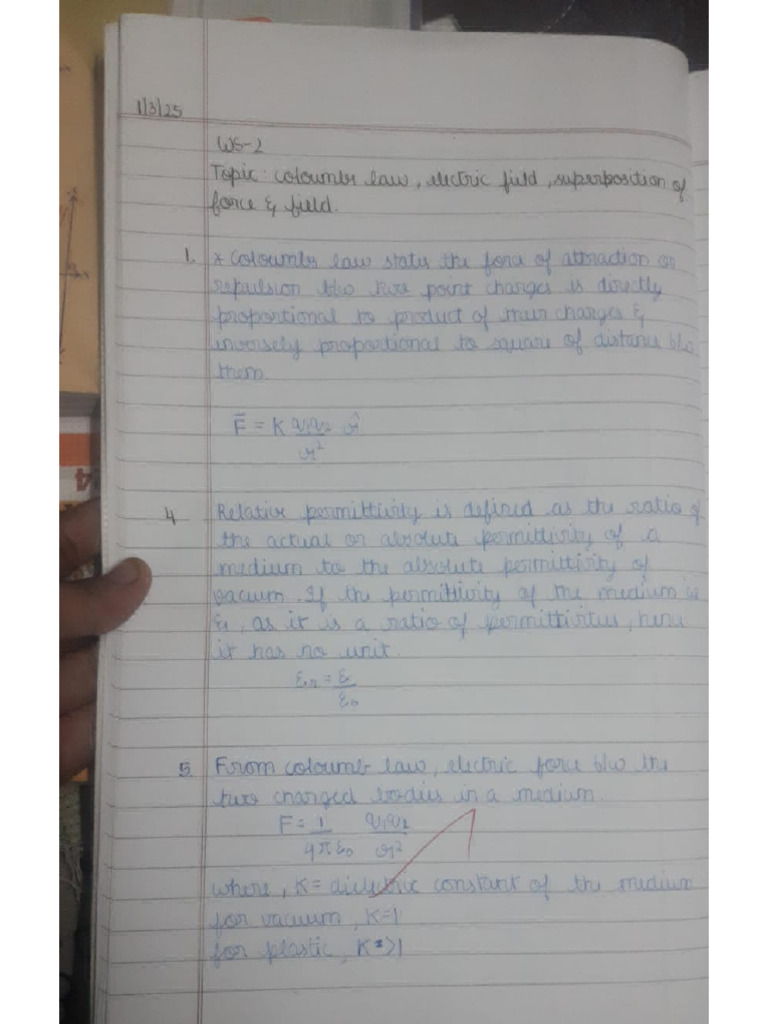 1/3/25
WS-2
Topic: coloumbs law, electric field, superposition of
force & field.
1. * Coloumbs law states the force of attraction or
repulsion btw two point charges is directly
proportional to product of their charges &
inversely proportional to square of distance b/w
them.
F̄ = K q₁q₂ r̂
r²
4 Relative permittivity is defined as the ratio of
the actual or absolute permittivity of a
medium to the absolute permittivity of
vacuum. If the permittivity of the medium is
ε, as it is a ratio of permittivities, here
it has no unit.
εr = ε
ε₀
5. From coloumb law, electric force b/w the
two charged bodies in a medium.
F = 1 q₁q₂
4πε₀ r²
where, K = dielectric constant of the medium
for vacuum, K=1
for plastic, K >1
4